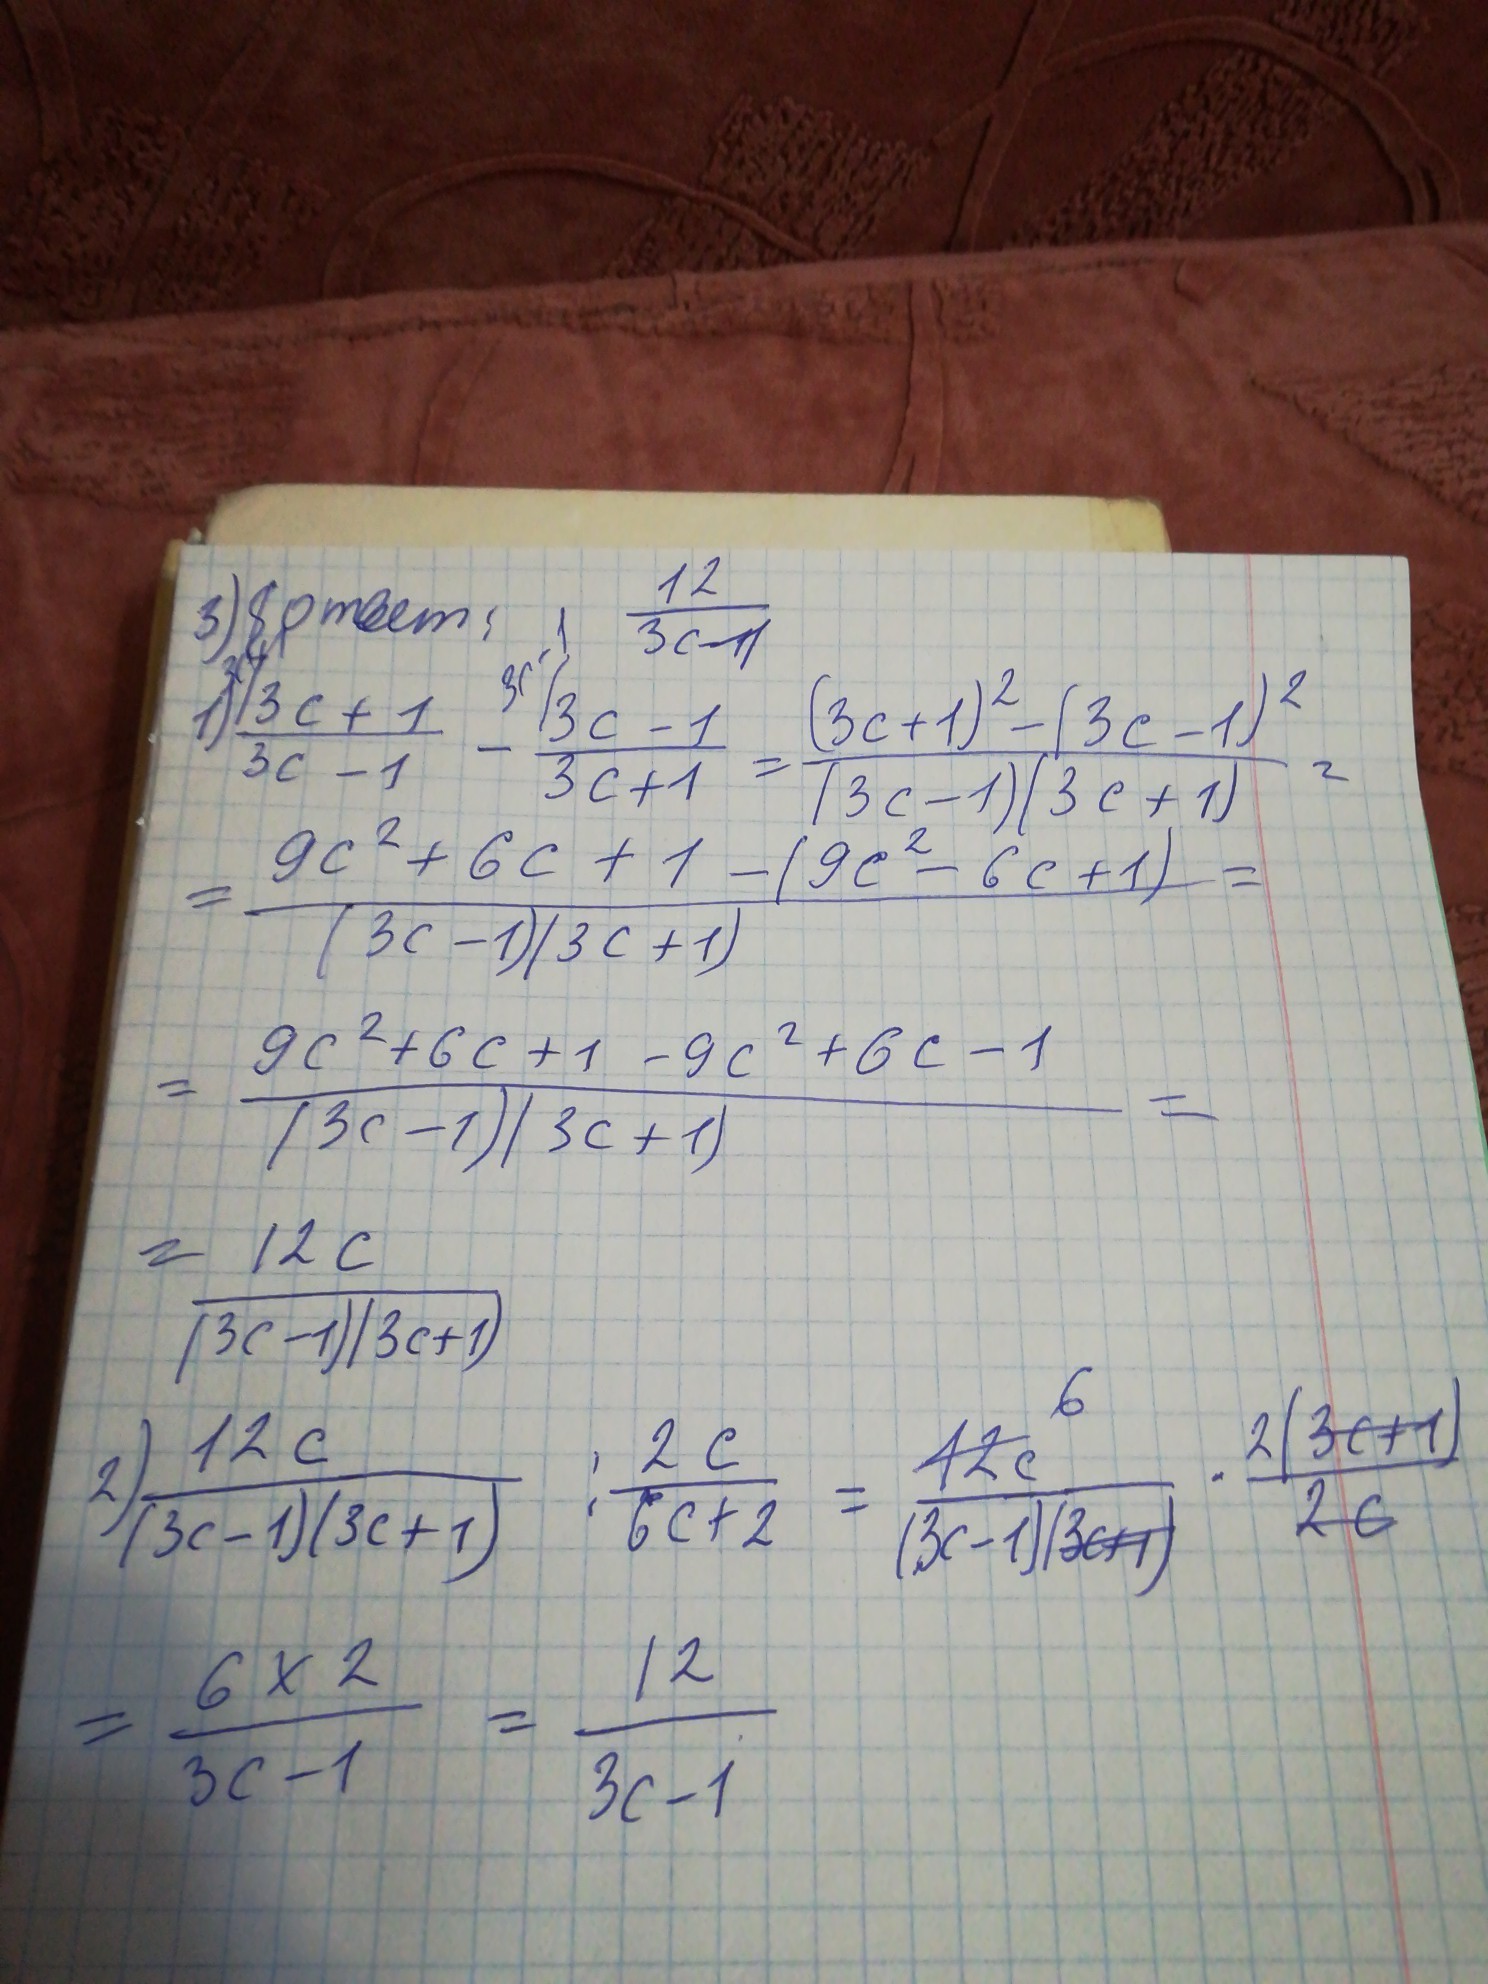 3) ответ: 12/(3c-1)
1) (3c+1)/(3c-1) - (3c-1)/(3c+1) = ((3c+1)² - (3c-1)²)/((3c-1)(3c+1)) =
= (9c² + 6c + 1 - (9c² - 6c + 1))/((3c-1)(3c+1)) =
= (9c² + 6c + 1 - 9c² + 6c - 1)/((3c-1)(3c+1)) =
= 12c/((3c-1)(3c+1))
2) 12c/((3c-1)(3c+1)) : 2c/(6c+2) = 12c 6/((3c-1)(3c+1)) · 2(3c+1)/2c
= (6 x 2)/(3c-1) = 12/(3c-1)